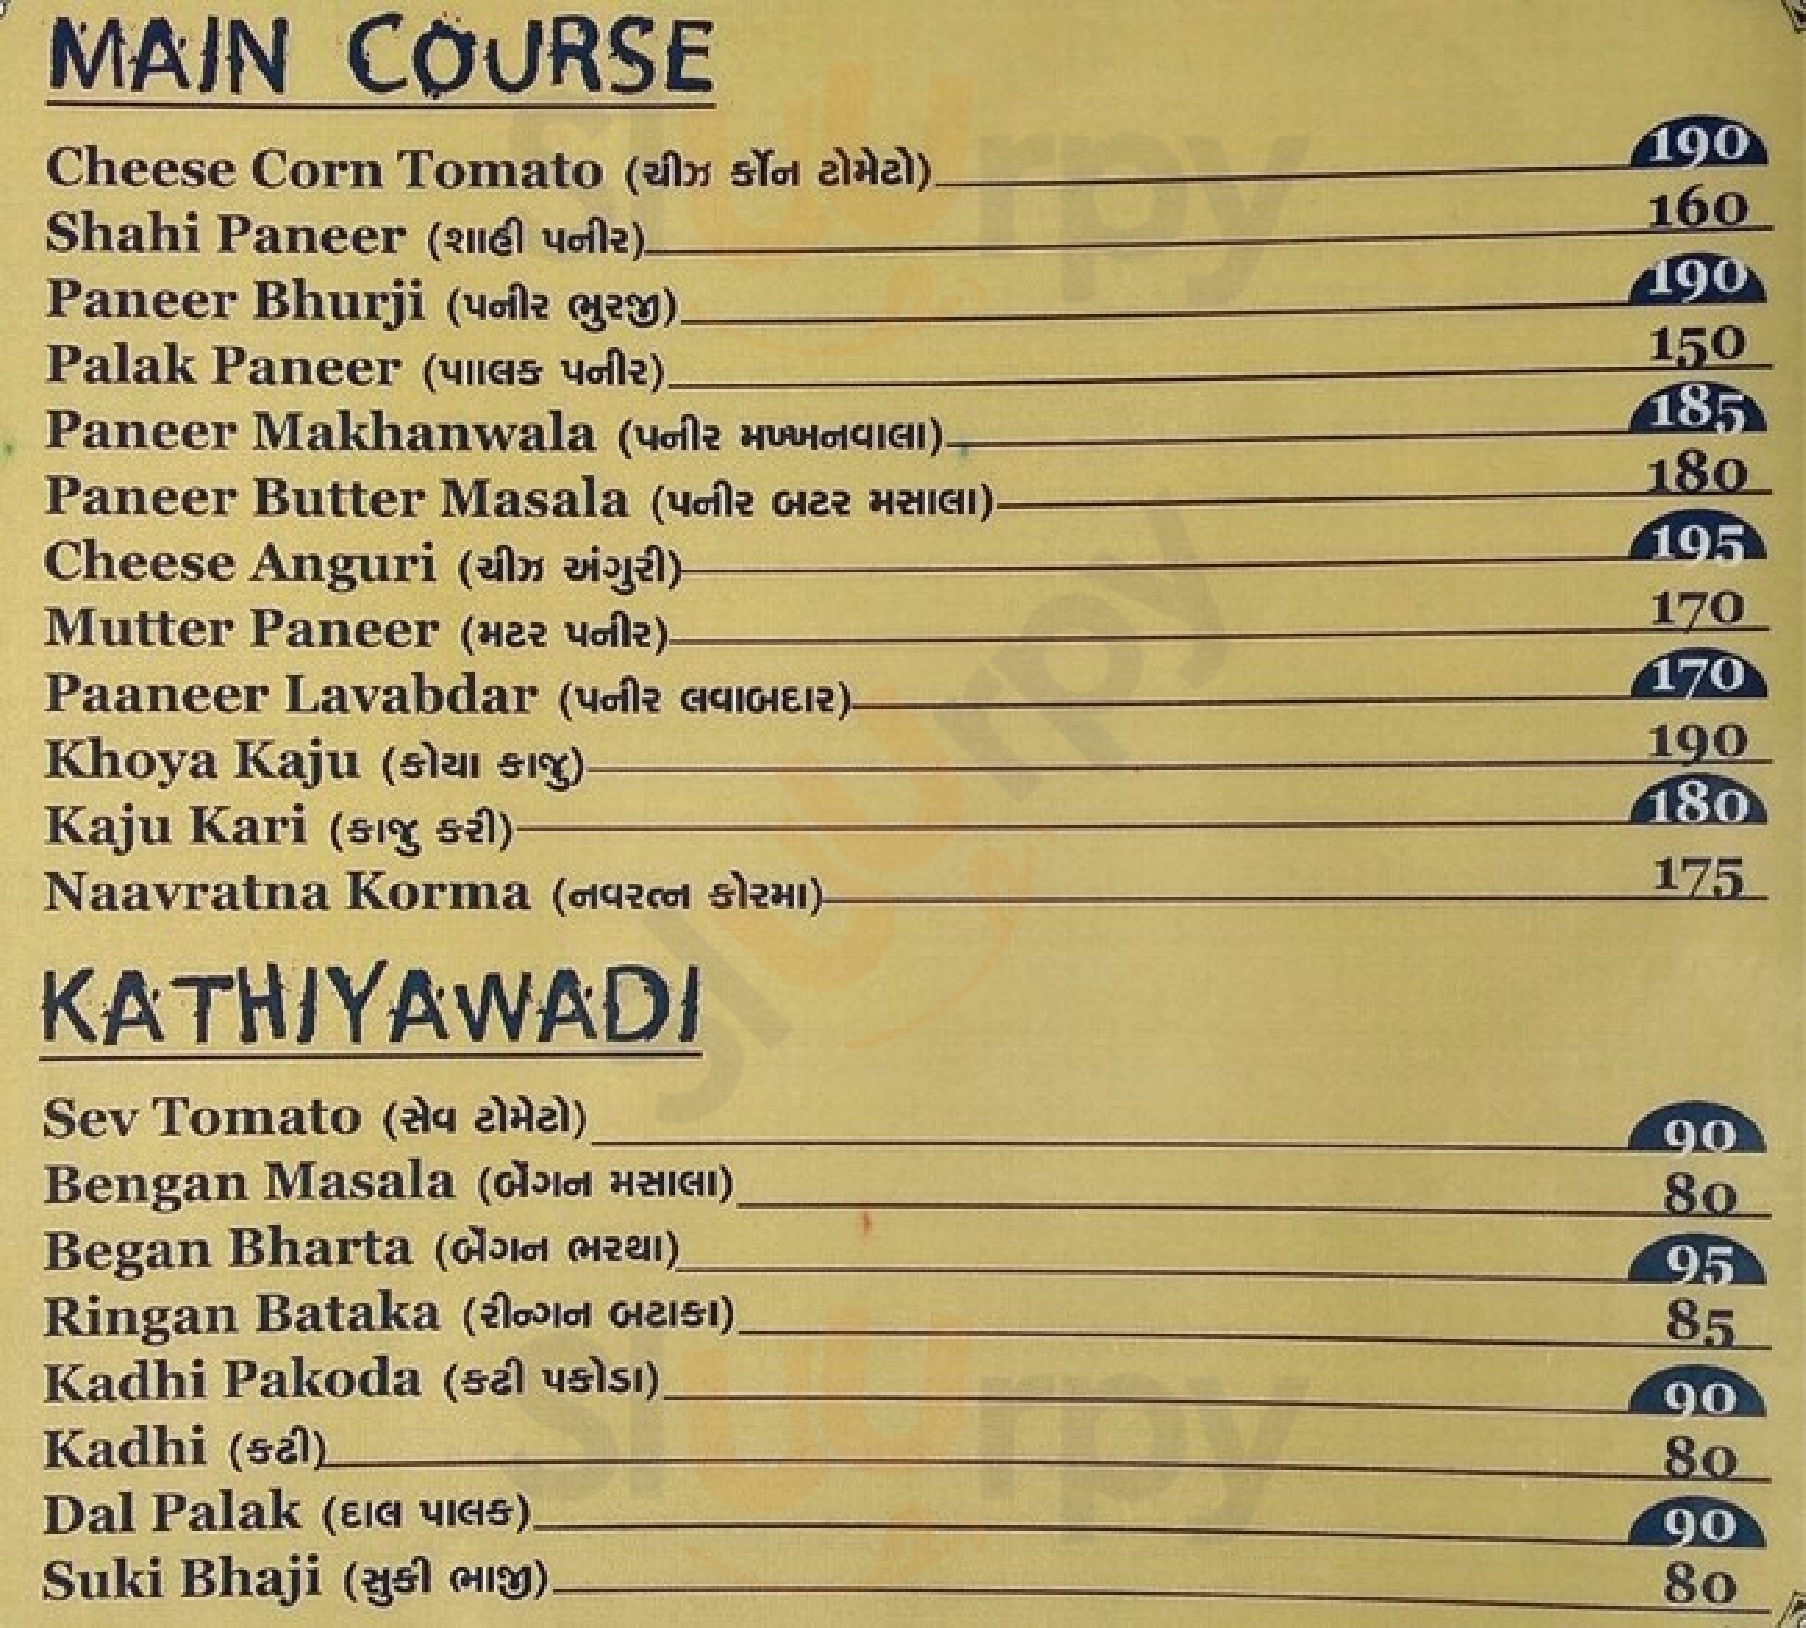 MAIN COURSE
Cheese Corn Tomato (ચીઝ કૉર્ન ટોમેટો) 190
Shahi Paneer (શાહી પનીર) 160
Paneer Bhurji (પનીર ભુરજી) 190
Palak Paneer (પાલક પનીર) 150
Paneer Makhanwala (પનીર મખ્ખનવાલા) 185
Paneer Butter Masala (પનીર બટર મસાલા) 180
Cheese Anguri (ચીઝ અંગુરી) 195
Mutter Paneer (મટર પનીર) 170
Paaneer Lavabdar (પનીર લવાબદાર) 170
Khoya Kaju (કોયા કાજુ) 190
Kaju Kari (કાજુ કરી) 180
Naavratna Korma (નવરત્ન કોરમા) 175
KATHIYAWADI
Sev Tomato (સેવ ટોમેટો) 90
Bengan Masala (બેંગન મસાલા) 80
Began Bharta (બેંગન ભરથા) 95
Ringan Bataka (રીન્ગન બટાકા) 85
Kadhi Pakoda (કઢી પકોડા) 90
Kadhi (કઢી) 80
Dal Palak (દાલ પાલક) 90
Suki Bhaji (સુકી ભાજી) 80
slurpy
slurpy
slurpy